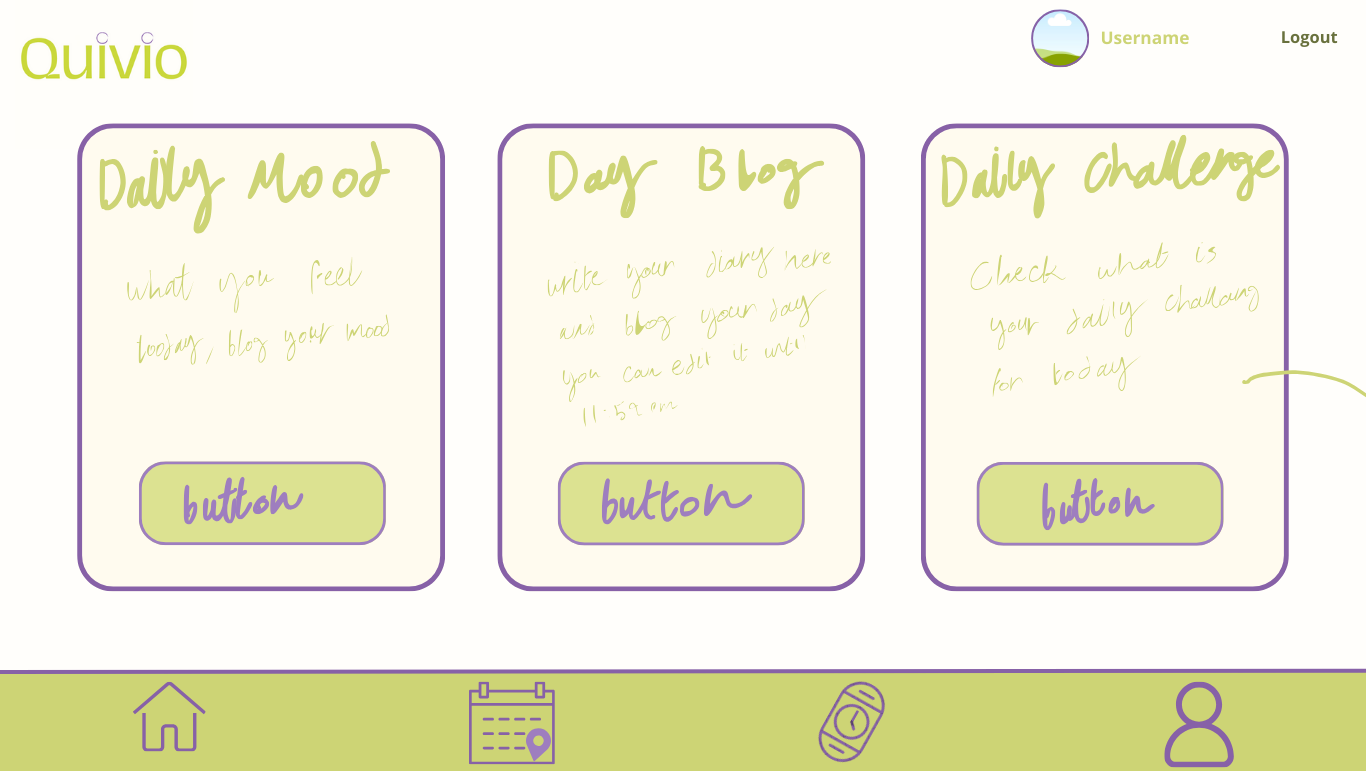 Quivio
Username
Logout
Daily Mood
what you feel
today, blog your mood
button
Day Blog
write your diary here
and blog your day
you can edit it until
11:59 pm
button
Daily Challenge
Check what is
your daily challang
for today
button